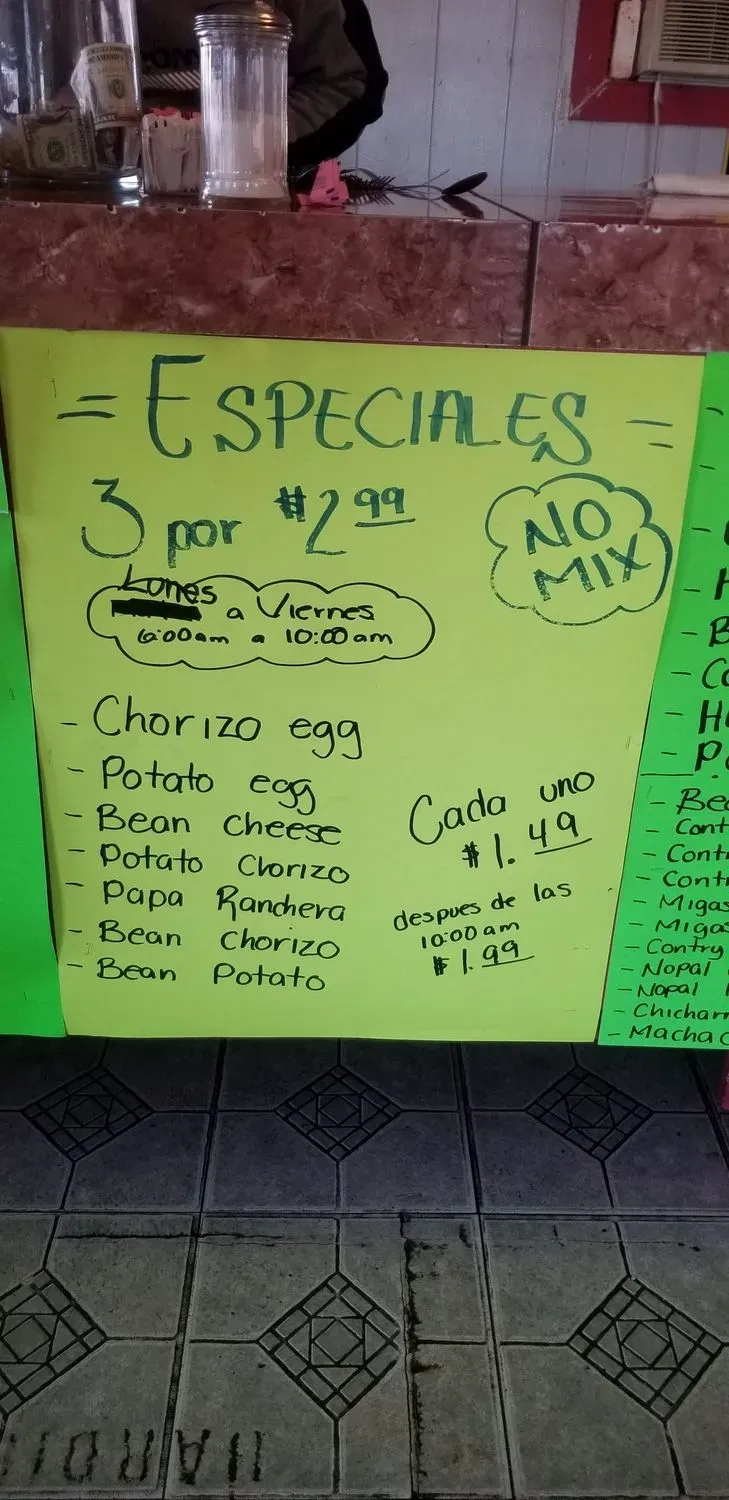 = ESPECIALES =
3 por $2.99
NO
MIX
Lunes a Viernes
6:00am a 10:00am
- Chorizo egg
- Potato egg
- Bean cheese
- Potato Chorizo
- Papa Ranchera
- Bean Chorizo
- Bean Potato
Cada uno
$1.49
despues de las
10:00am
$1.99
- Migas
- Migas
- Contry
- Nopal
- Nopal